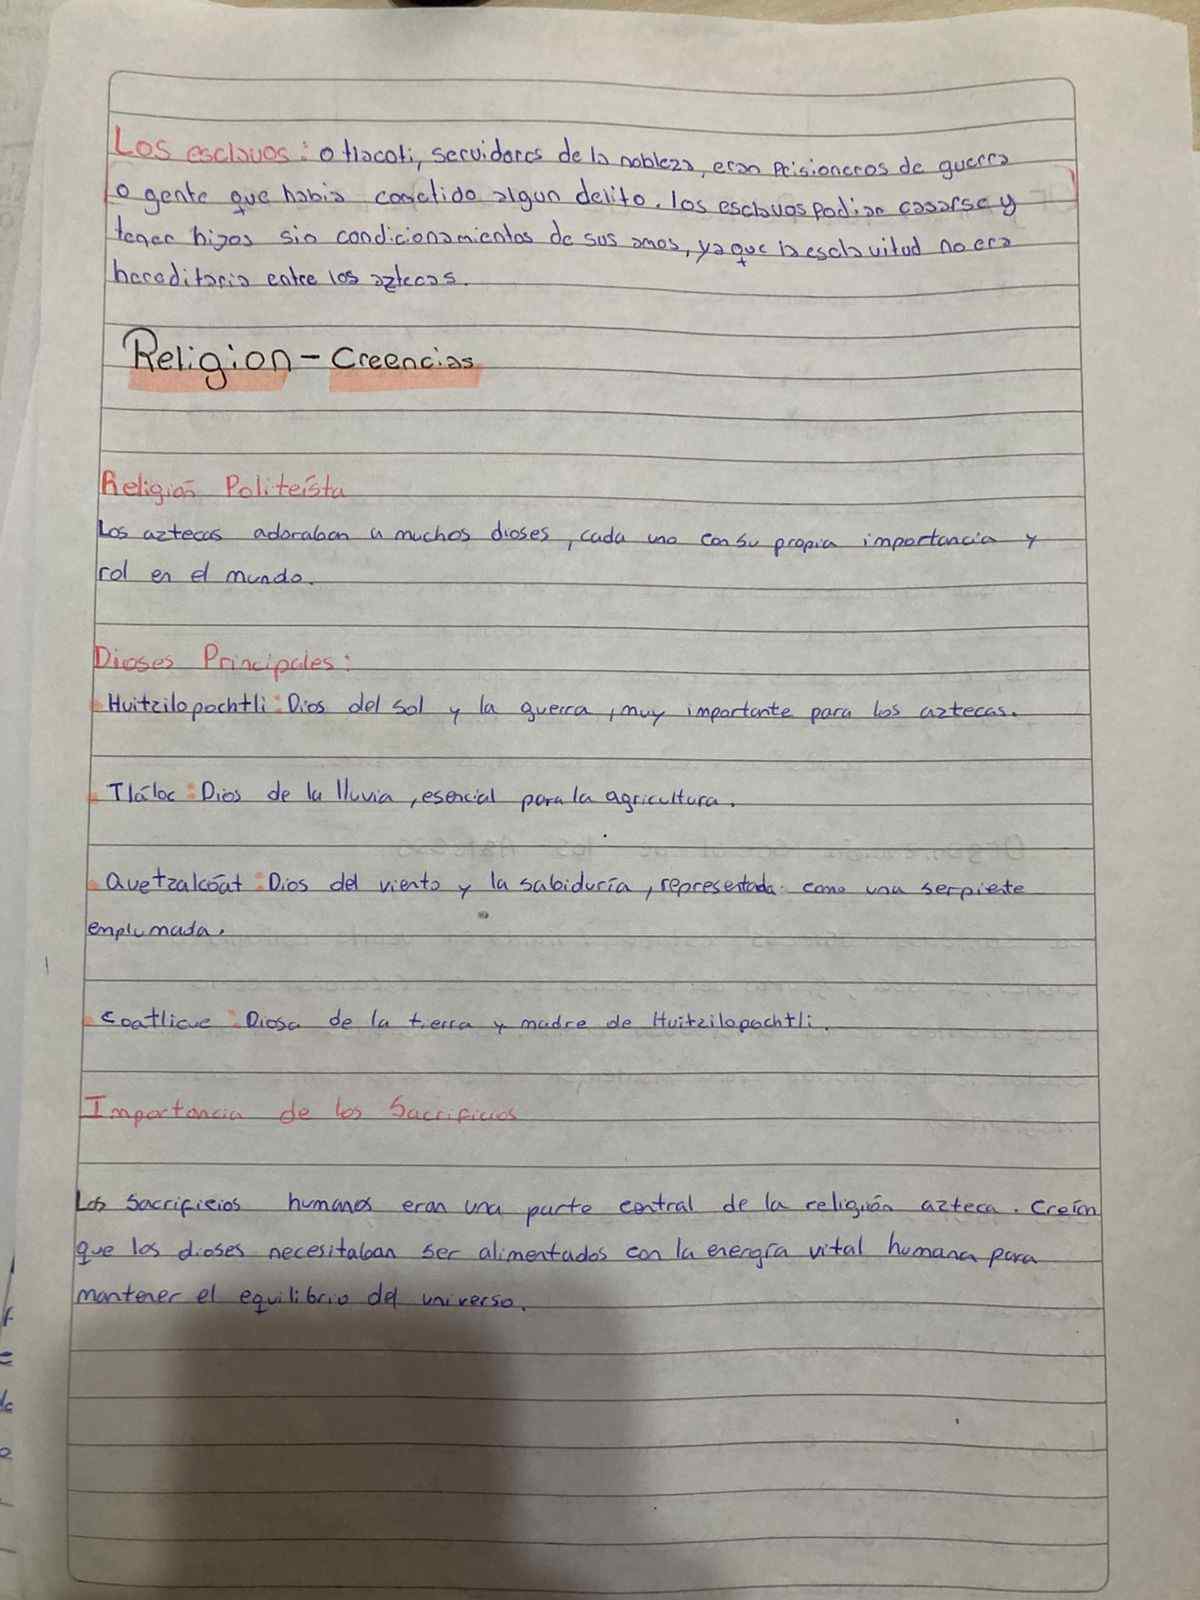 Los esclavos: o tlacoti, servidores de la nobleza, eran prisioneros de guerra
o gente que habia cometido algun delito. los esclavos podian casarse y
tener hijos sin condicionamientos de sus amos, ya que la esclavitud no era
hereditaria entre los aztecas.
Religion - Creencias
Religión Politeísta
Los aztecas adoraban a muchos dioses, cada uno con su propia importancia y
rol en el mundo.
Dioses Principales:
Huitzilopochtli: Dios del sol y la guerra, muy importante para los aztecas.
Tláloc: Dios de la lluvia, esencial para la agricultura.
Quetzalcóat: Dios del viento y la sabiduría, representada como una serpiente
emplumada.
Coatlicue: Diosa de la tierra y madre de Huitzilopochtli.
Importancia de los Sacrificios
Los Sacrificios humanos eran una parte central de la religión azteca. Creían
que los dioses necesitaban ser alimentados con la energía vital humana para
mantener el equilibrio del universo.